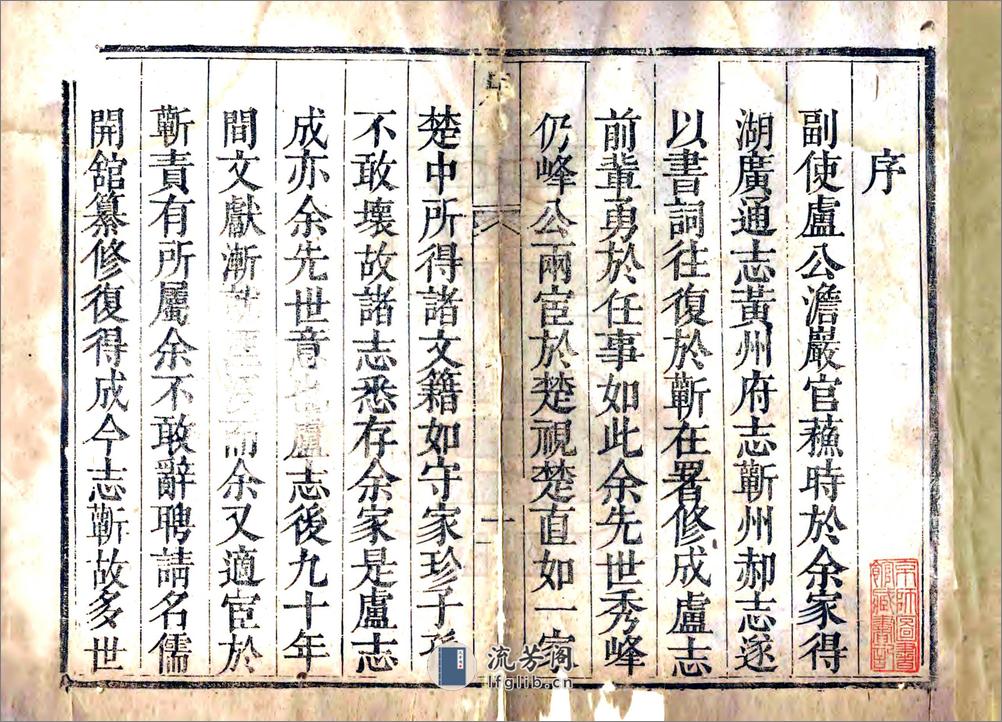 序
副使盧公澹巖官蘄時於余家得
湖廣通志黃州府志蘄州郝志遂
以書詞往復於蘄在署修成盧志
前輩勇於任事如此余先世秀峰
仍峰公兩宦於楚視楚直如一家
楚中所得諸文籍如守家珍子孫
不敢壞故諸志悉存余家是盧志
成亦余先世意也盧志後九十年
間文獻漸 而余又適宦於
蘄責有所屬余不敢辭聘請名儒
開舘纂修復得成今志蘄故多世
京師圖書館藏書記
流芳阁
lfglib.cn